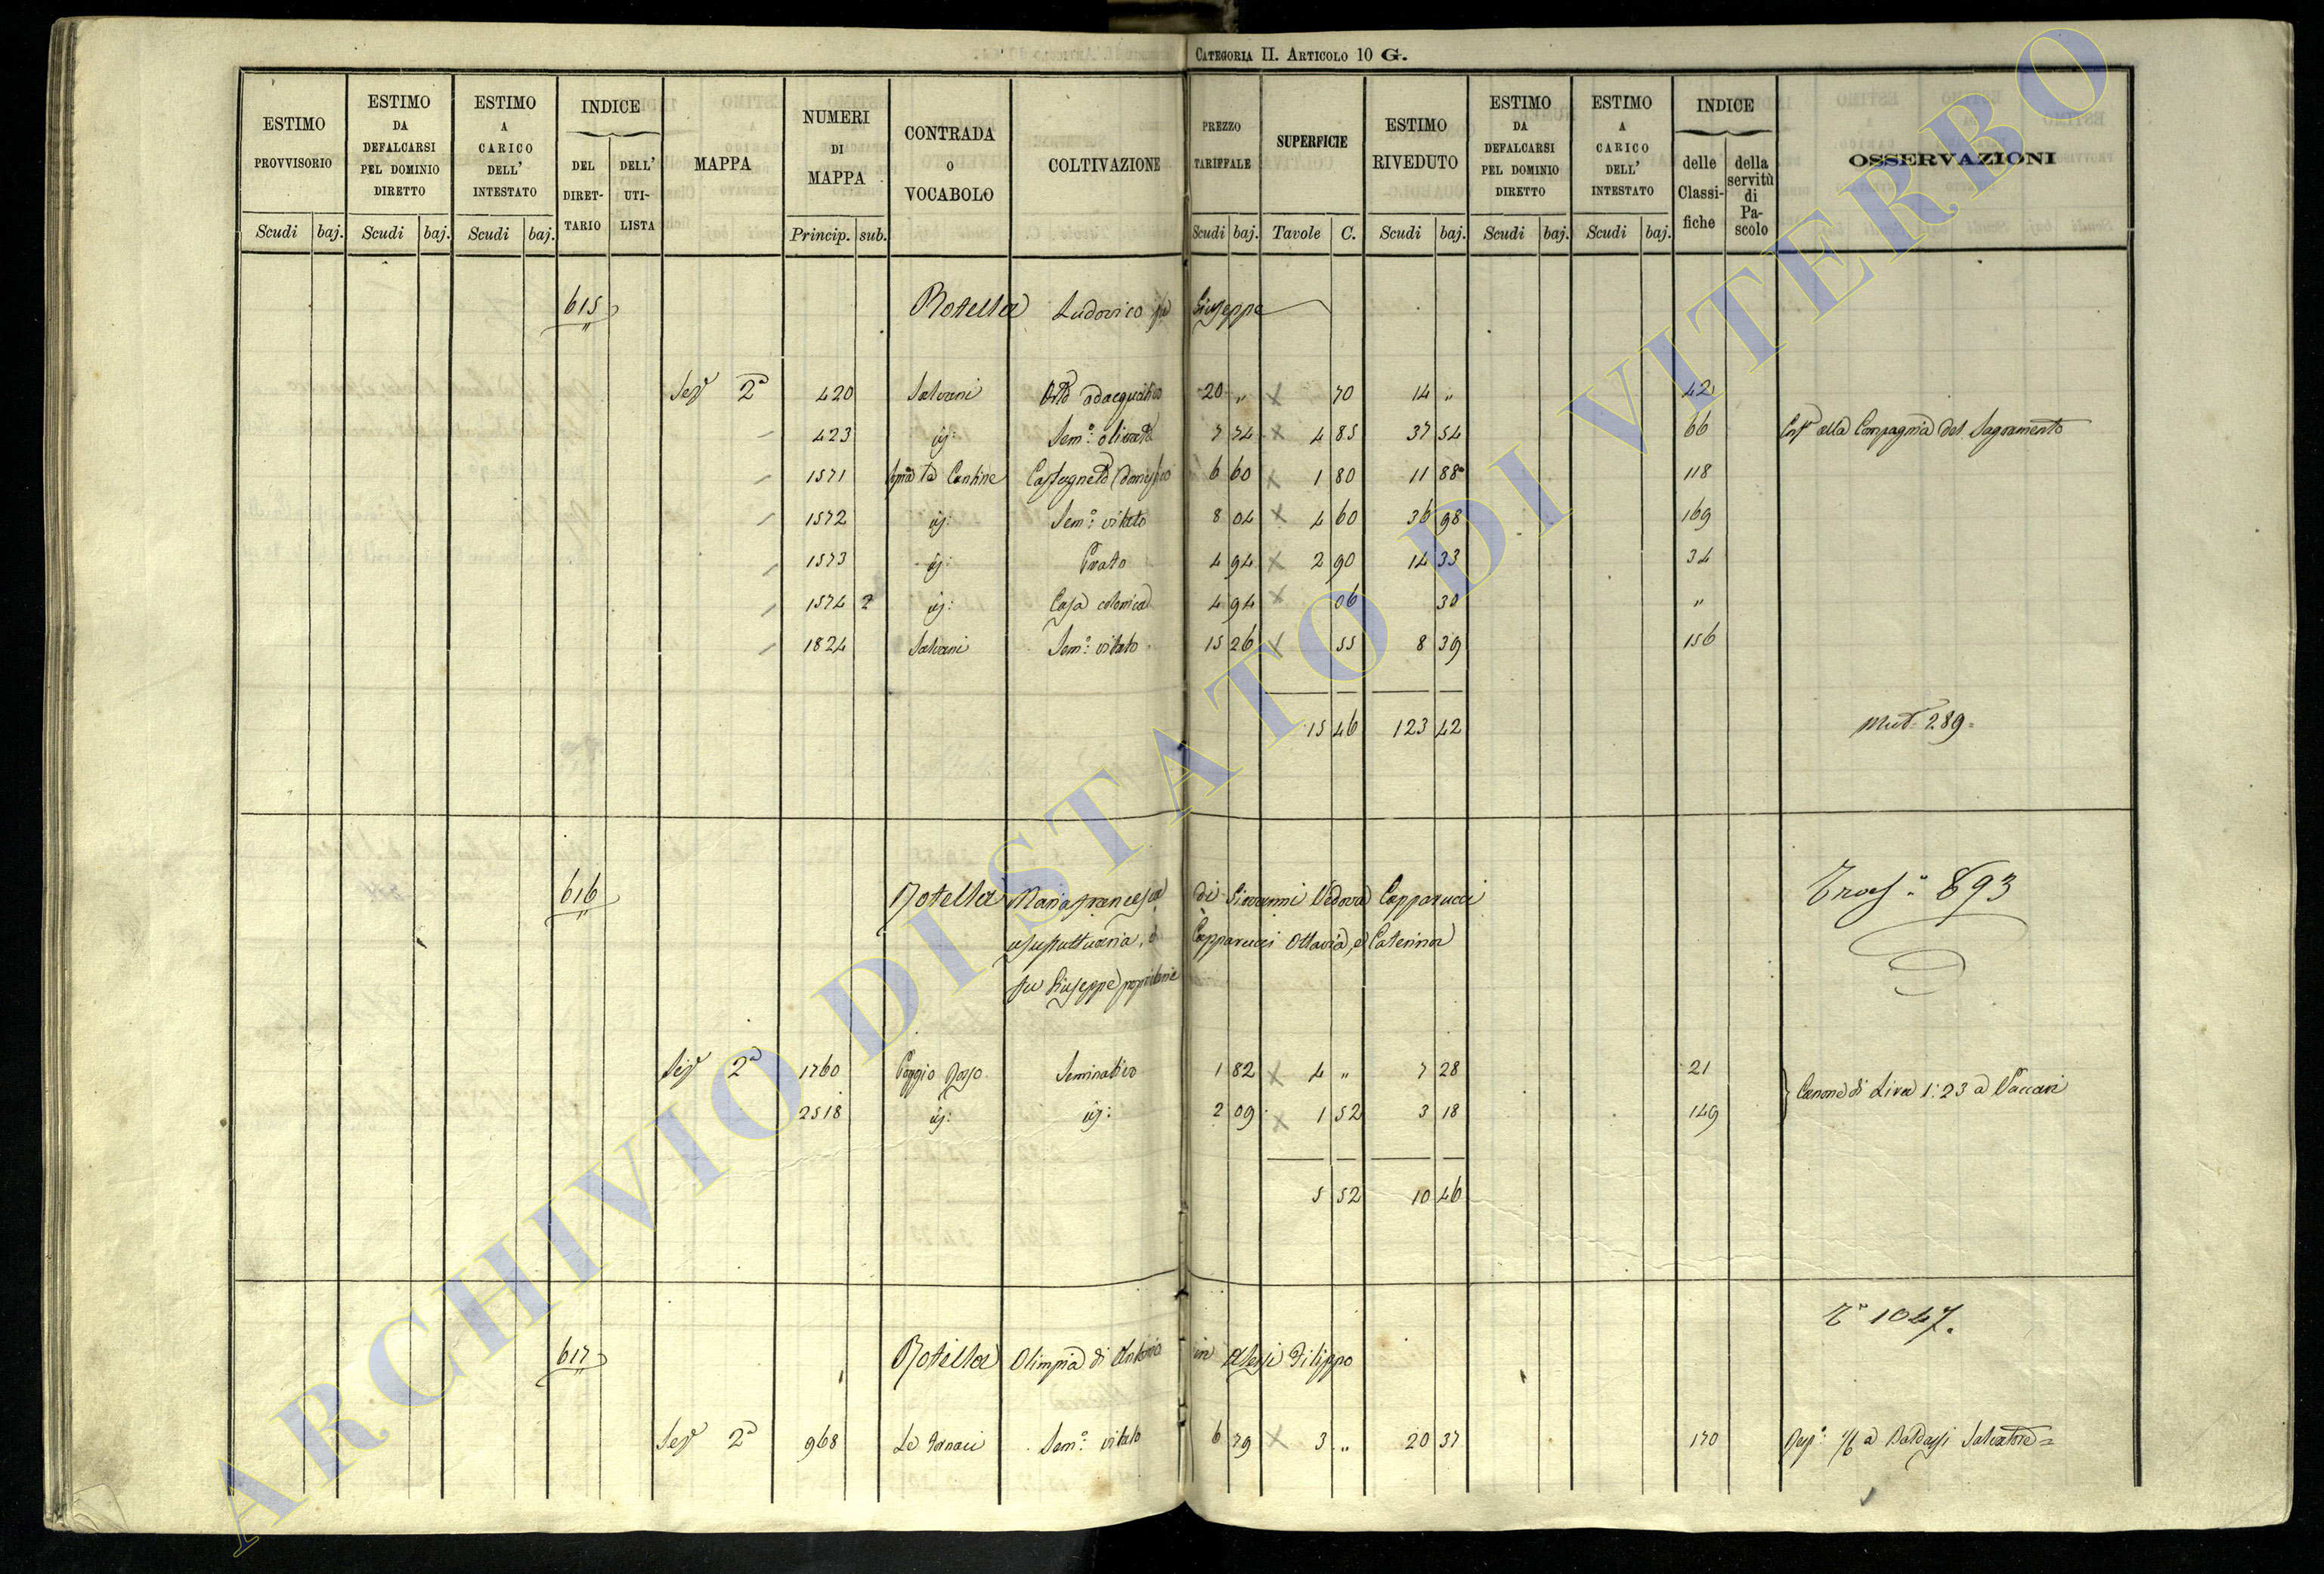 CATEGORIA II. ARTICOLO 10 G.
ESTIMO PROVVISORIO
ESTIMO DA DEFALCARSI PEL DOMINIO DIRETTO
ESTIMO A CARICO DELL' INTESTATO
INDICE
DEL DIRET-TARIO
DELL' UTI-LISTA
MAPPA
NUMERI DI MAPPA
CONTRADA O VOCABOLO
COLTIVAZIONE
PREZZO TARIFFALE
SUPERFICIE
ESTIMO RIVEDUTO
ESTIMO DA DEFALCARSI PEL DOMINIO DIRETTO
ESTIMO A CARICO DELL' INTESTATO
INDICE
delle Classi-fiche
della servitù di Pa-scolo
OSSERVAZIONI
Scudi baj. Scudi baj. Scudi baj. Princip. sub. Scudi baj. Tavole C. Scudi baj. Scudi baj. Scudi baj.
615 Rotella Ludovico fu Giuseppe
Sez.e 2a 420 Salvani Orto adacquativo 20 " 70 14 " 42
423 Sem.o olivato 7 74 4 85 37 54 66 alla Compagnia del Sagramento
1571 Cantine Castagneto domestico 6 60 1 80 11 88 118
1572 Sem.o vitato 8 04 4 60 36 98 169
1573 Prato 4 94 2 90 14 33 34
1574 2 Casa colonica 4 94 06 30 "
1824 Salvani Sem.o vitato 15 26 55 8 39 156
15 46 123 42 Mut. 289
616 Rotella Maria francesca di Giovanni Vedova Capparucci
usufruttuaria, e Capparucci Ottavia, e Caterina
fu Giuseppe proprietarie
893
Sez.e 2a 1760 Poggio Rosso Seminativo 1 82 4 " 7 28 21
Canone di Lira 1:23 a Vaccari
2518 2 09 1 52 3 18 149
5 52 10 46
1047.
617 Rotella Olimpia di Antonio in Alessi Filippo
Sez.e 2a 968 Le fornaci Sem.o vitato 6 79 3 " 20 37 170 a Baldassi Salvatore
ARCHIVIO DI STATO DI VITERBO